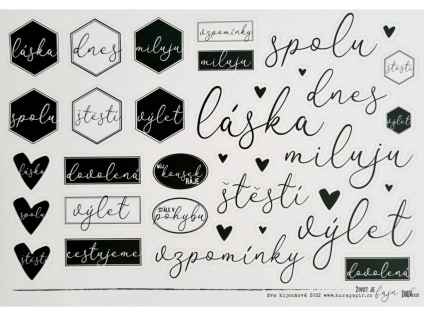 láska
dnes
miluju
vzpomínky
miluju
spolu
štěstí
dnes
spolu
štěstí
výlet
láska
výlet
miluju
láska
dovolená
MŮJ
kousek
RÁJE
štěstí
spolu
výlet
STÁLE V
pohybu
výlet
štěstí
cestujeme
vzpomínky
dovolená
ŽIVOT JE
fajn
Eva Kijonková 2022 www.hurapapir.cz